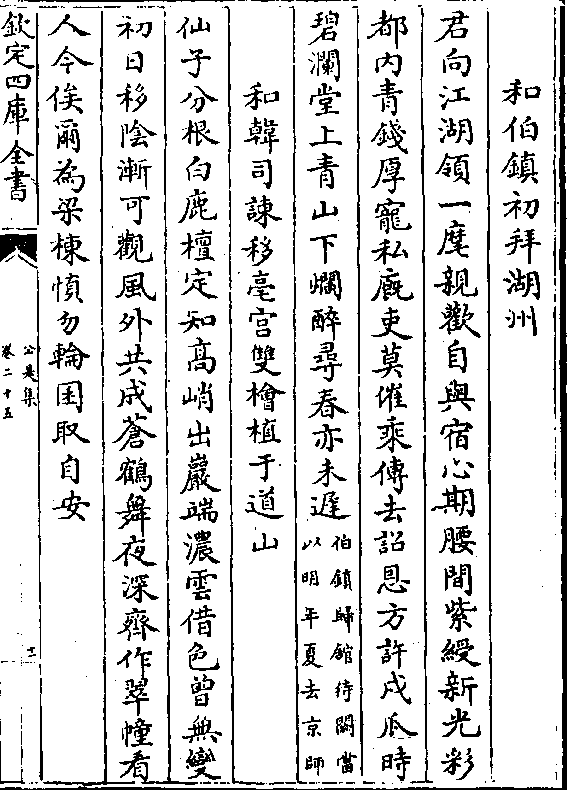 和伯鎮初拜湖州
君向江湖領一麾親歡自與宿心期腰間紫綬新光彩
都内青錢厚寵私廐吏莫催乘傳去詔恩方許戍瓜時
碧瀾堂上青山下爛醉尋春亦未遲伯鎮歸館待闕當
以明年夏去京師
和韓司諫移亳宫雙檜植于道山
仙子分根白鹿檀定知高峭出巖端濃雲借色曾無變
初日移陰漸可觀風外共成蒼鶴舞夜深齊作翠幢看
人今俟爾為梁棟慎勿輪囷取自安
欽定四庫全書
公是集
卷二十五
十二